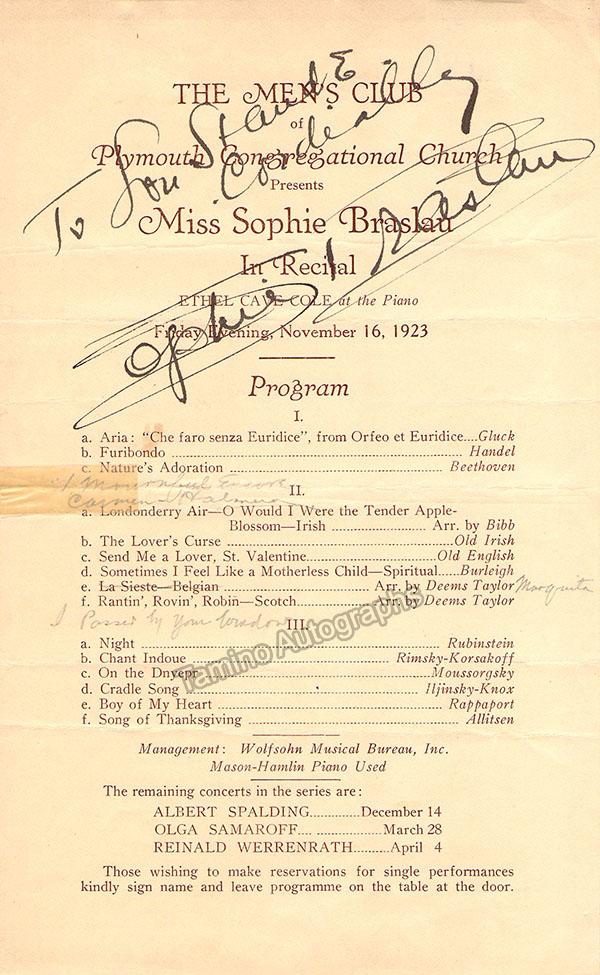 THE MEN'S CLUB
of
Plymouth Congregational Church
Presents
Miss Sophie Braslau
In Recital
ETHEL CAVE COLE at the Piano
Friday Evening, November 16, 1923
To
Cordially
Sophie Braslau
Program
I.
a. Aria: "Che faro senza Euridice", from Orfeo et Euridice....Gluck
b. Furibondo Handel
c. Nature's Adoration Beethoven
Mournful Encore
Carmen
II.
a. Londonderry Air—O Would I Were the Tender Apple-
Blossom—Irish Arr. by Bibb
b. The Lover's Curse Old Irish
c. Send Me a Lover, St. Valentine Old English
d. Sometimes I Feel Like a Motherless Child—Spiritual Burleigh
e. La Sieste—Belgian Arr. by Deems Taylor Marquita
f. Rantin', Rovin', Robin—Scotch Arr. by Deems Taylor
I Passed by Your Window
III.
a. Night Rubinstein
b. Chant Indoue Rimsky-Korsakoff
c. On the Dnyepr Moussorgsky
d. Cradle Song Iljinsky-Knox
e. Boy of My Heart Rappaport
f. Song of Thanksgiving Allitsen
Tamino Autographs
Management: Wolfsohn Musical Bureau, Inc.
Mason-Hamlin Piano Used
The remaining concerts in the series are:
ALBERT SPALDING December 14
OLGA SAMAROFF March 28
REINALD WERRENRATH April 4
Those wishing to make reservations for single performances
kindly sign name and leave programme on the table at the door.